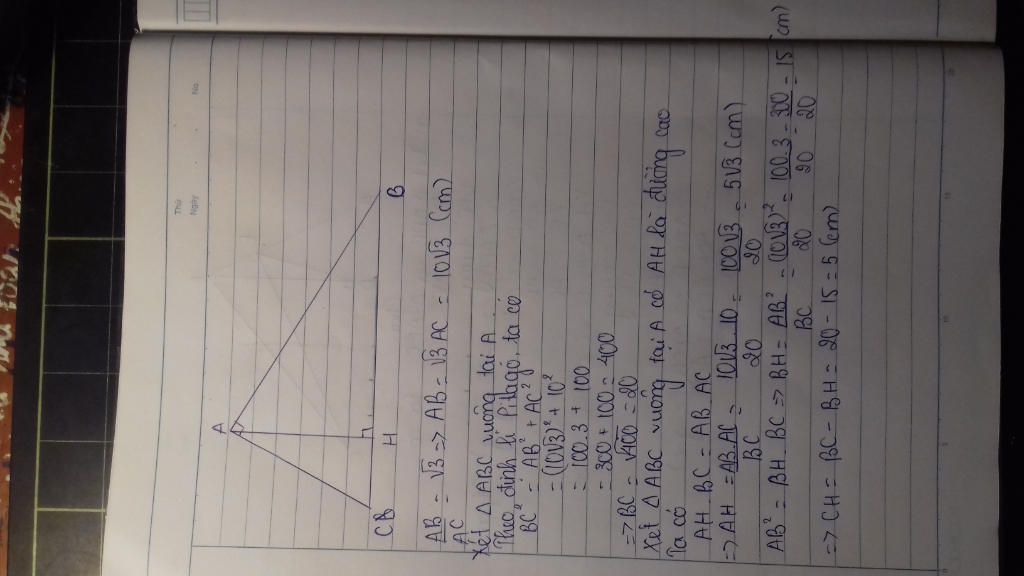 Thứ
Ngày
No.
A
C B
H
B
AB/AC = √3 => AB = √3 AC = 10√3 (cm)
Xét Δ ABC vuông tại A
Theo định lí Pitago, ta có
BC² = AB² + AC²
= (10√3)² + 10²
= 100.3 + 100
= 300 + 100 = 400
=> BC = √400 = 20
Xét Δ ABC vuông tại A có AH là đường cao
Ta có
AH . BC = AB . AC
=> AH = AB.AC/BC = 10√3 . 10/20 = 100√3/20 = 5√3 (cm)
AB² = BH . BC => BH = AB²/BC = (10√3)²/20 = 100.3/20 = 300/20 = 15 (cm)
=> CH = BC - BH = 20 - 15 = 5 (cm)